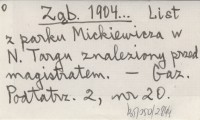 Zgb. 1904... List
z parku Mickiewicza w
N. Targu znaleziony przed
magistratem. — Gaz.
Podtatrz. 2, nr 20.